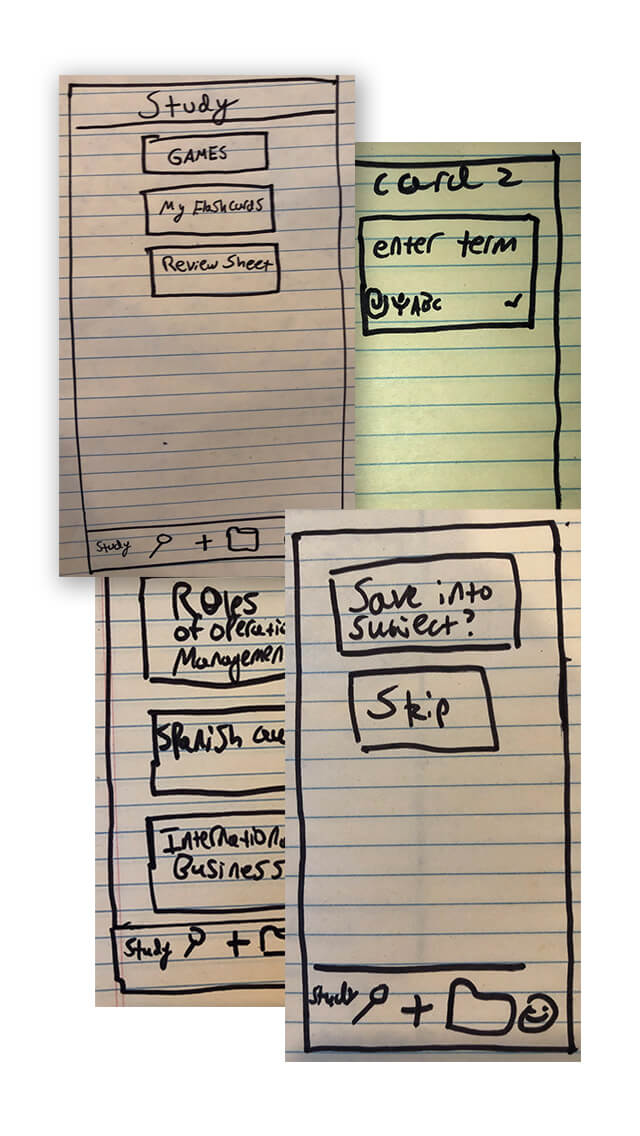 Study
GAMES
My Flashcards
Review Sheet
Study +
card 2
enter term
ABC
Roles
of operatio
Managemen
Spanish
Internationa
Business
Study +
Save into
subject?
Skip
Study +